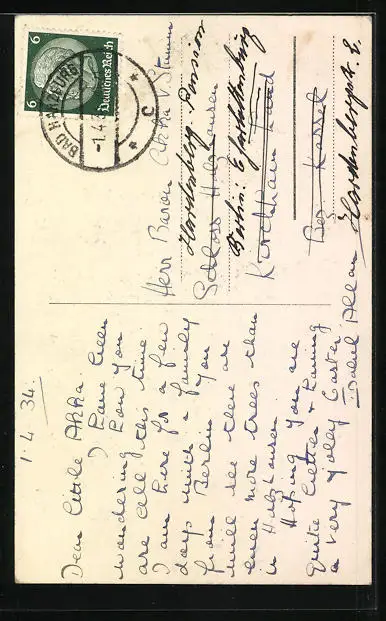 1.4.34.
Dear little Akka.
I have been
wondering how you
are all this time.
I am here for a few
days with a family
from Berlin. You
will see there are
even more trees than
in Hülshausen.
Hoping you are
quite better & having
a very jolly Easter
Isabel Allan
6 6
Deutsches Reich
BAD HARZBURG
-1.4.
* c *
Herr Baron Akka v. Stumm
Hardenberg-Pension
Schloss
Berlin: Charlottenburg
Kirchhain
Bez. Kassel
Hardenbergstr.